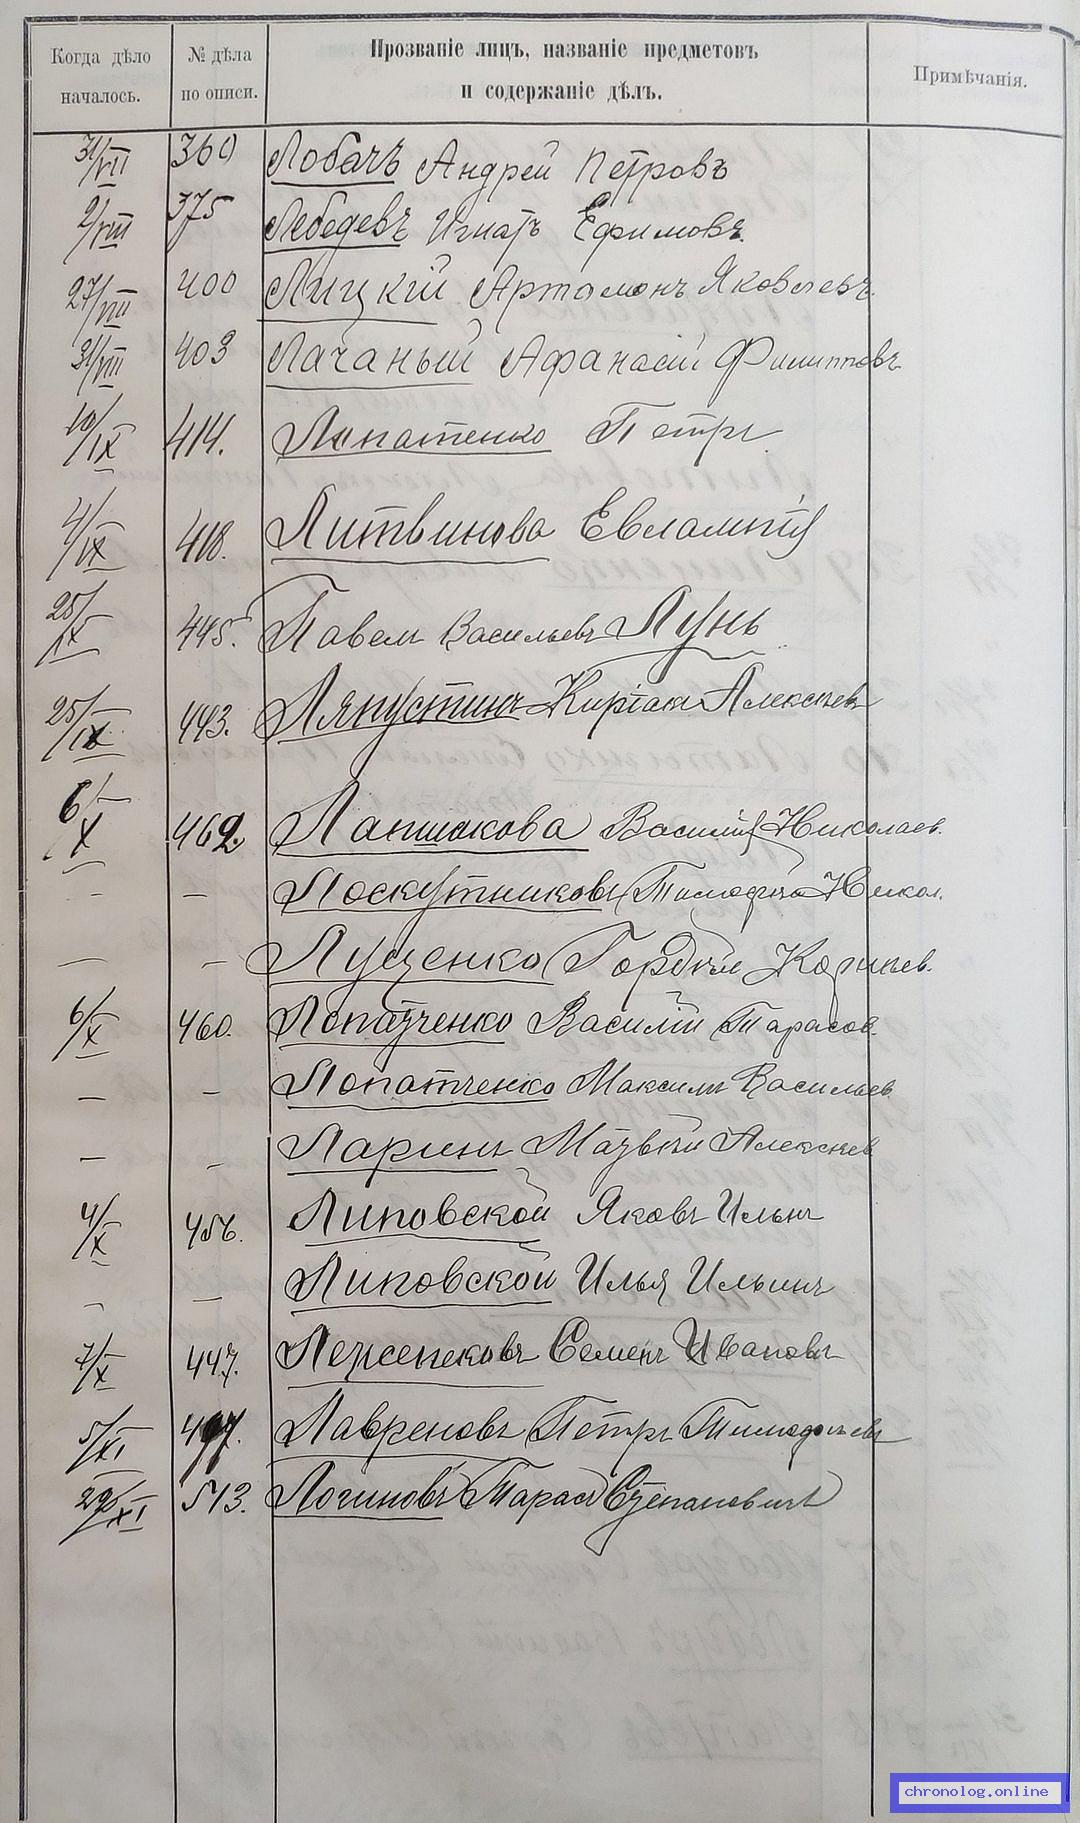 Когда дѣло началось.
№ дѣла по описи.
Прозваніе лицъ, названіе предметовъ
и содержаніе дѣлъ.
Примѣчанія.
31/VII 360 Лобачъ Андрей Петровъ
2/VIII 375 Лебедевъ Игнатъ Ефимовъ
27/VIII 400 Лицкій Артамонъ Яковлевъ
31/VIII 403 Лачаный Афанасій Филипповъ
10/IX 414. Лопатенко Петръ
4/IX 418. Литвинова Евлампія
25/IX 445. Павелъ Васильевъ Лунь
25/IX 443. Ляпустинъ Киріакъ Алексѣевъ
6/X 462. Лапшакова Василій Николаев.
— — Лоскутниковъ Тимофей Никол.
— — Лущенко Гордѣй Корнѣев.
6/X 460. Лопатченко Василій Тарасов.
— — Лопатченко Максимъ Васильев
— — Ларинъ Матвѣй Алексѣев
4/X 456. Липовской Яковъ Ильинъ
— — Липовской Илья Ильинъ
7/X 447. Семенъ Ивановъ
5/XI 497. Лавреновъ Петръ Тимофѣевъ
29/XI 513. Логиновъ Тарас Степановичъ
chronolog.online